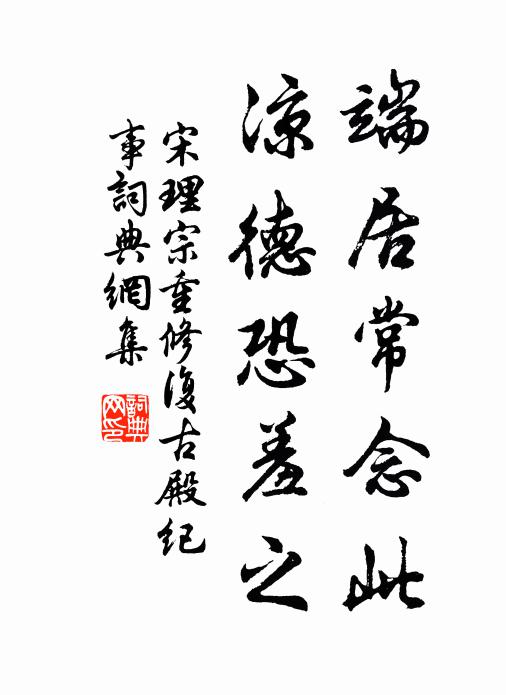 端居常念此
涼德恐羞之
宋理宗重修復古殿紀
事詞典網集
詞典
网印